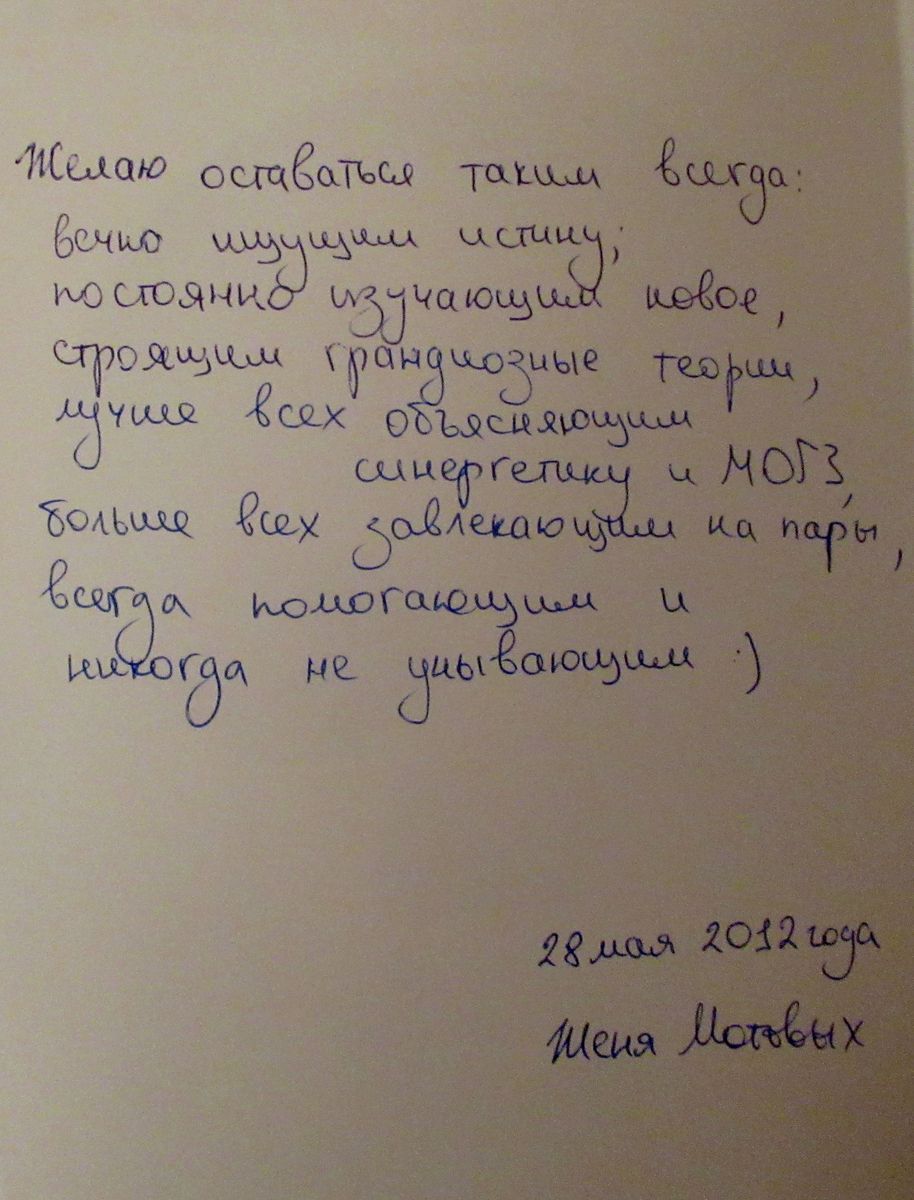 Желаю оставаться таким всегда:
вечно ищущим истину;
постоянно изучающим новое,
строящим грандиозные теории,
лучше всех объясняющим
синергетику и МОГЗ,
больше всех завлекающим на пары,
всегда помогающим и
никогда не унывающим :)
28 мая 2012 года
Женя